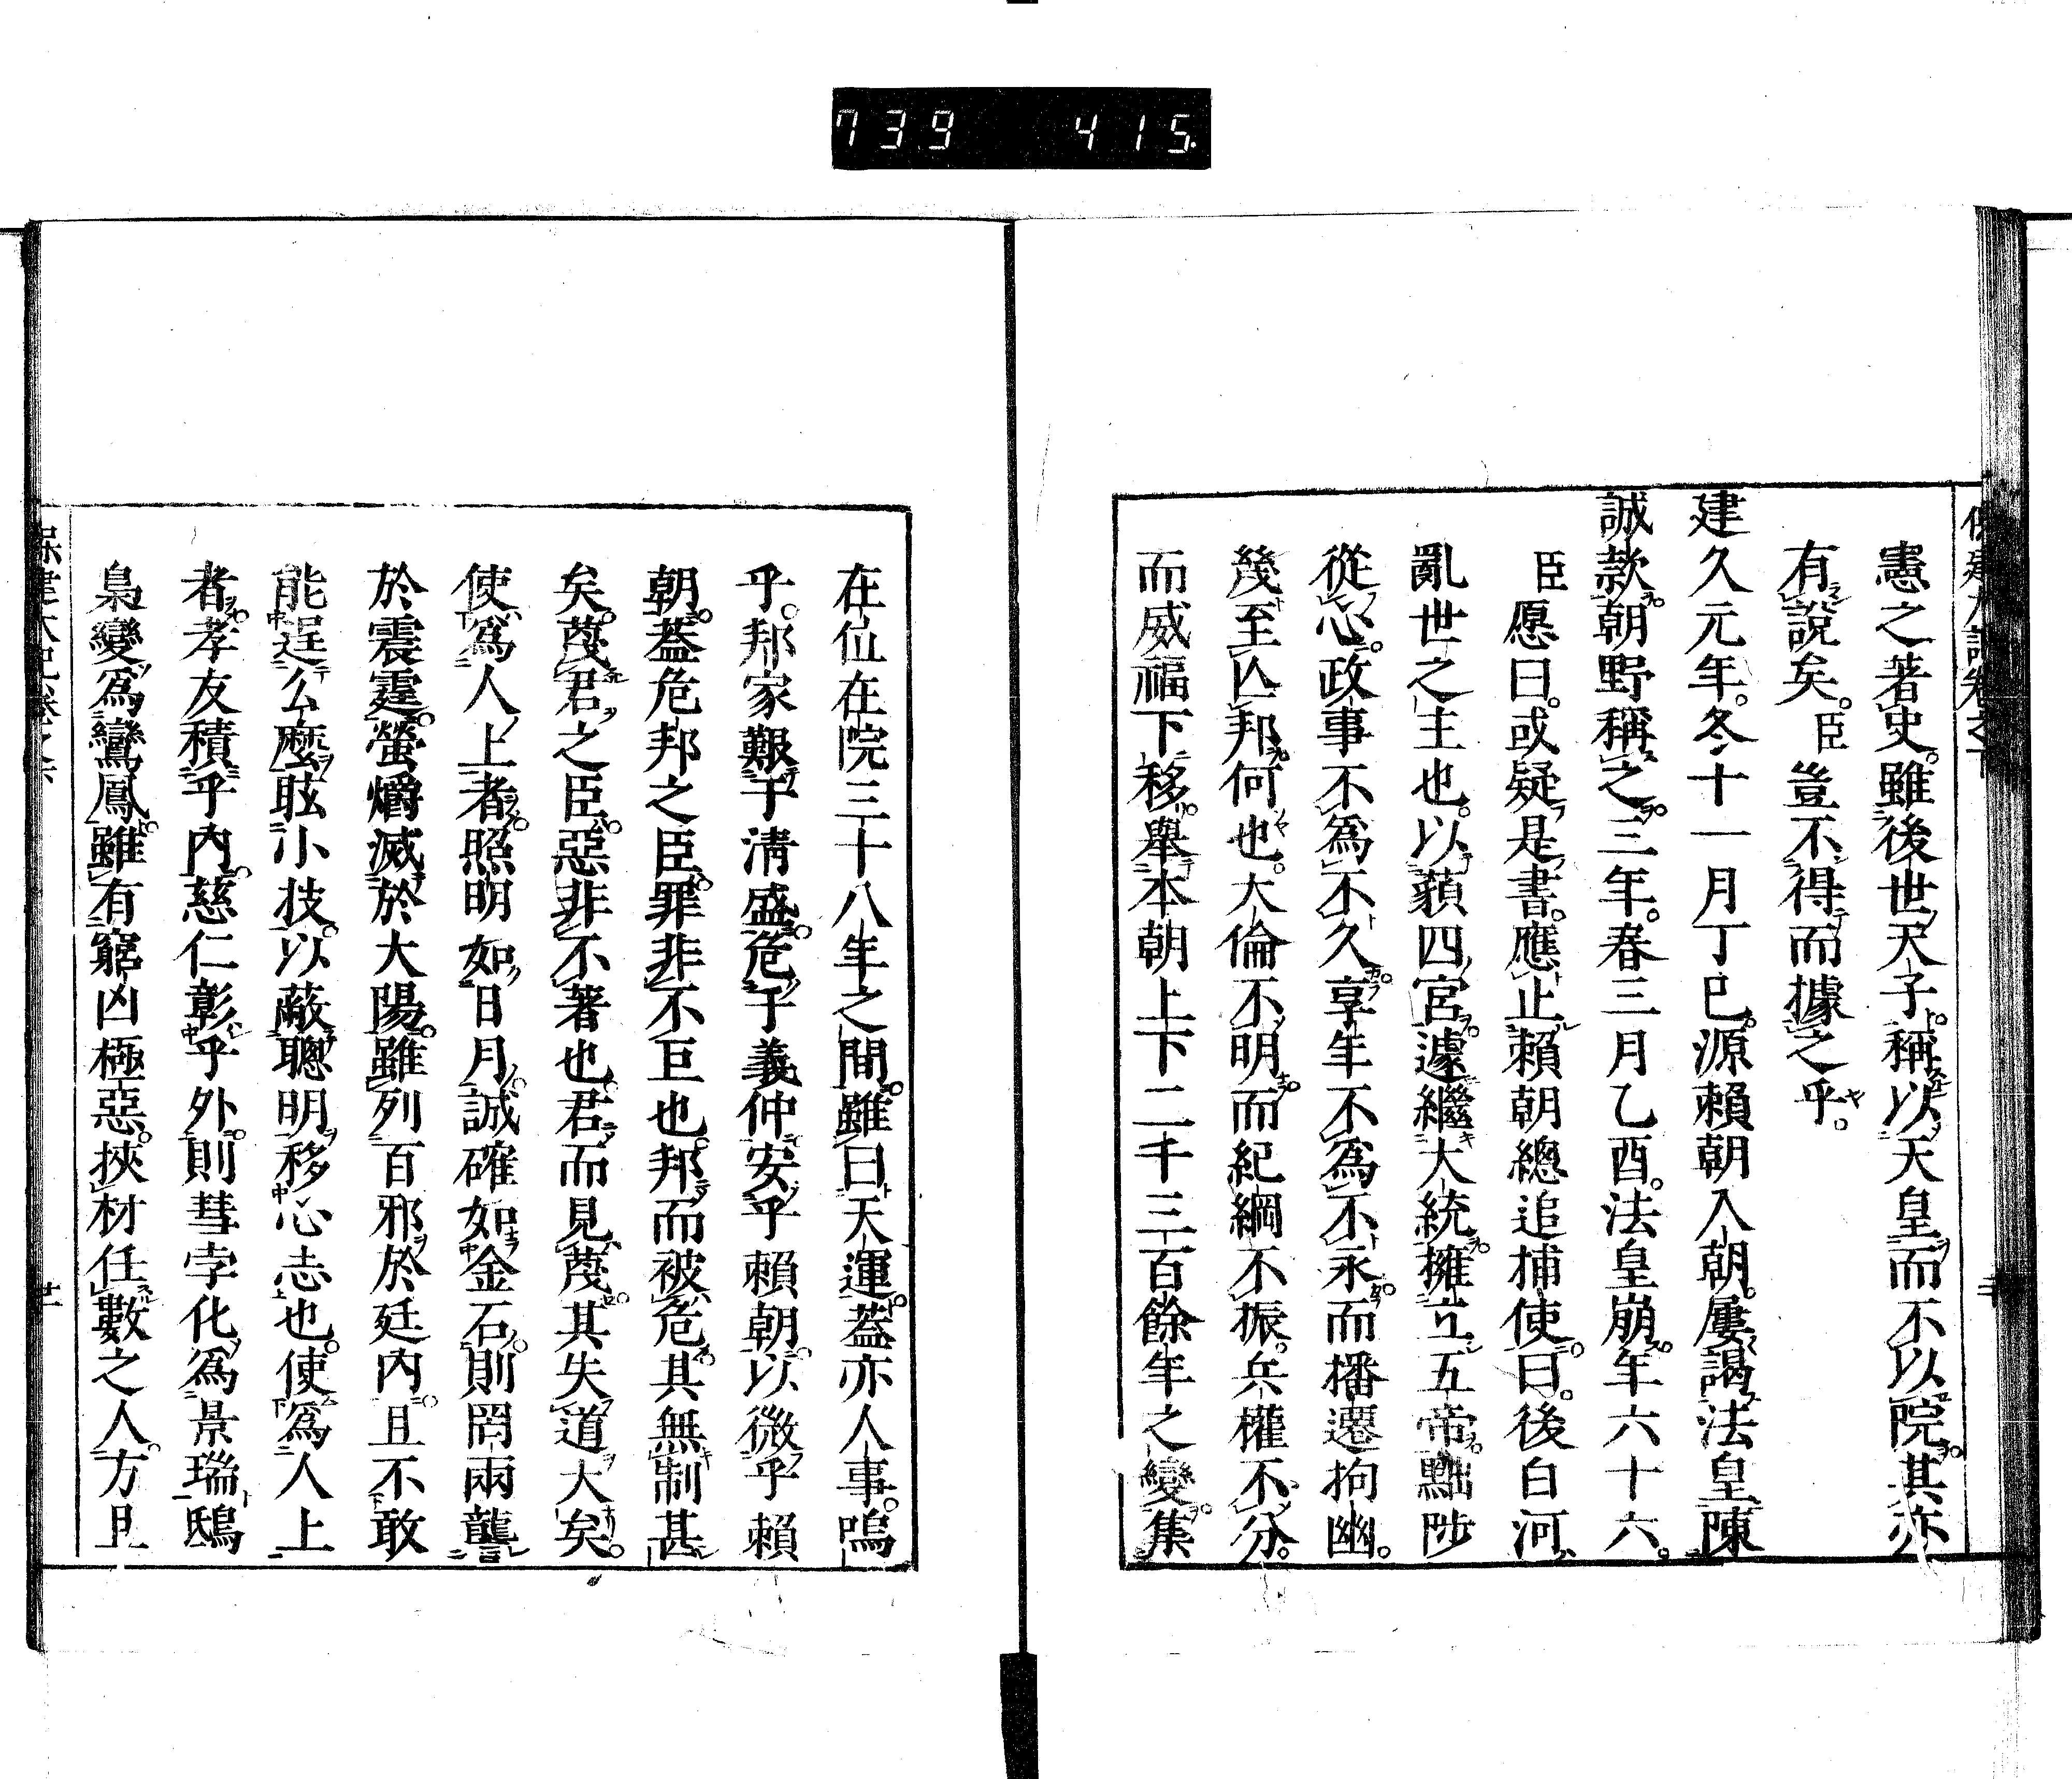 739 415
憲之著史。雖後世天子。稱以天皇而不以院。其亦
有說矣。臣豈不得而據之乎。
建久元年。冬十一月丁巳。源賴朝入朝。屢謁法皇陳
誠款。朝野稱之。三年。春三月乙酉。法皇崩。年六十六。
臣愿曰。或疑是書。應止賴朝總追捕使。曰。後白河
亂世之主也。以藐四宮。遽繼大統。擁立五帝。黜陟
從心。政事不爲不久。享年不爲不永。而播遷拘幽。
幾至亾邦。何也。大倫不明。而紀綱不振。兵權不分。
而威福下移。舉本朝上下二千三百餘年之變。集
在位在院三十八年之間。雖曰天運。蓋亦人事。嗚
乎。邦家艱于淸盛。危于義仲。安乎賴朝。以微乎賴
朝。蓋危邦之臣。罪非不巨也。邦而被危。其無制甚
矣。蔑君之臣。惡非不著也。君而見蔑。其失道大矣。
使爲人上者。照明如日月。誠確如金石。則罔兩讋
於震霆。螢爝滅於大陽。雖列百邪於廷內。且不敢
能逞么麼眩小技。以蔽聰明移心志也。使爲人上
者。孝友積乎內。慈仁彰乎外。則彗孛化爲景瑞。鴟
梟變爲鸞鳳。雖有窮凶極惡。挾材任數之人。方且